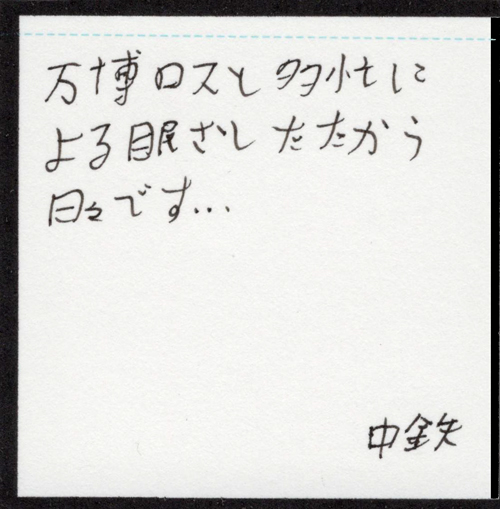 万博ロスと多忙に
よる眠さとたたかう
日々です...
中鉄